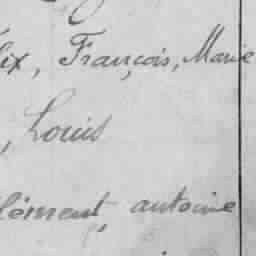 lix, François, Marie
, Louis
lément, antoine